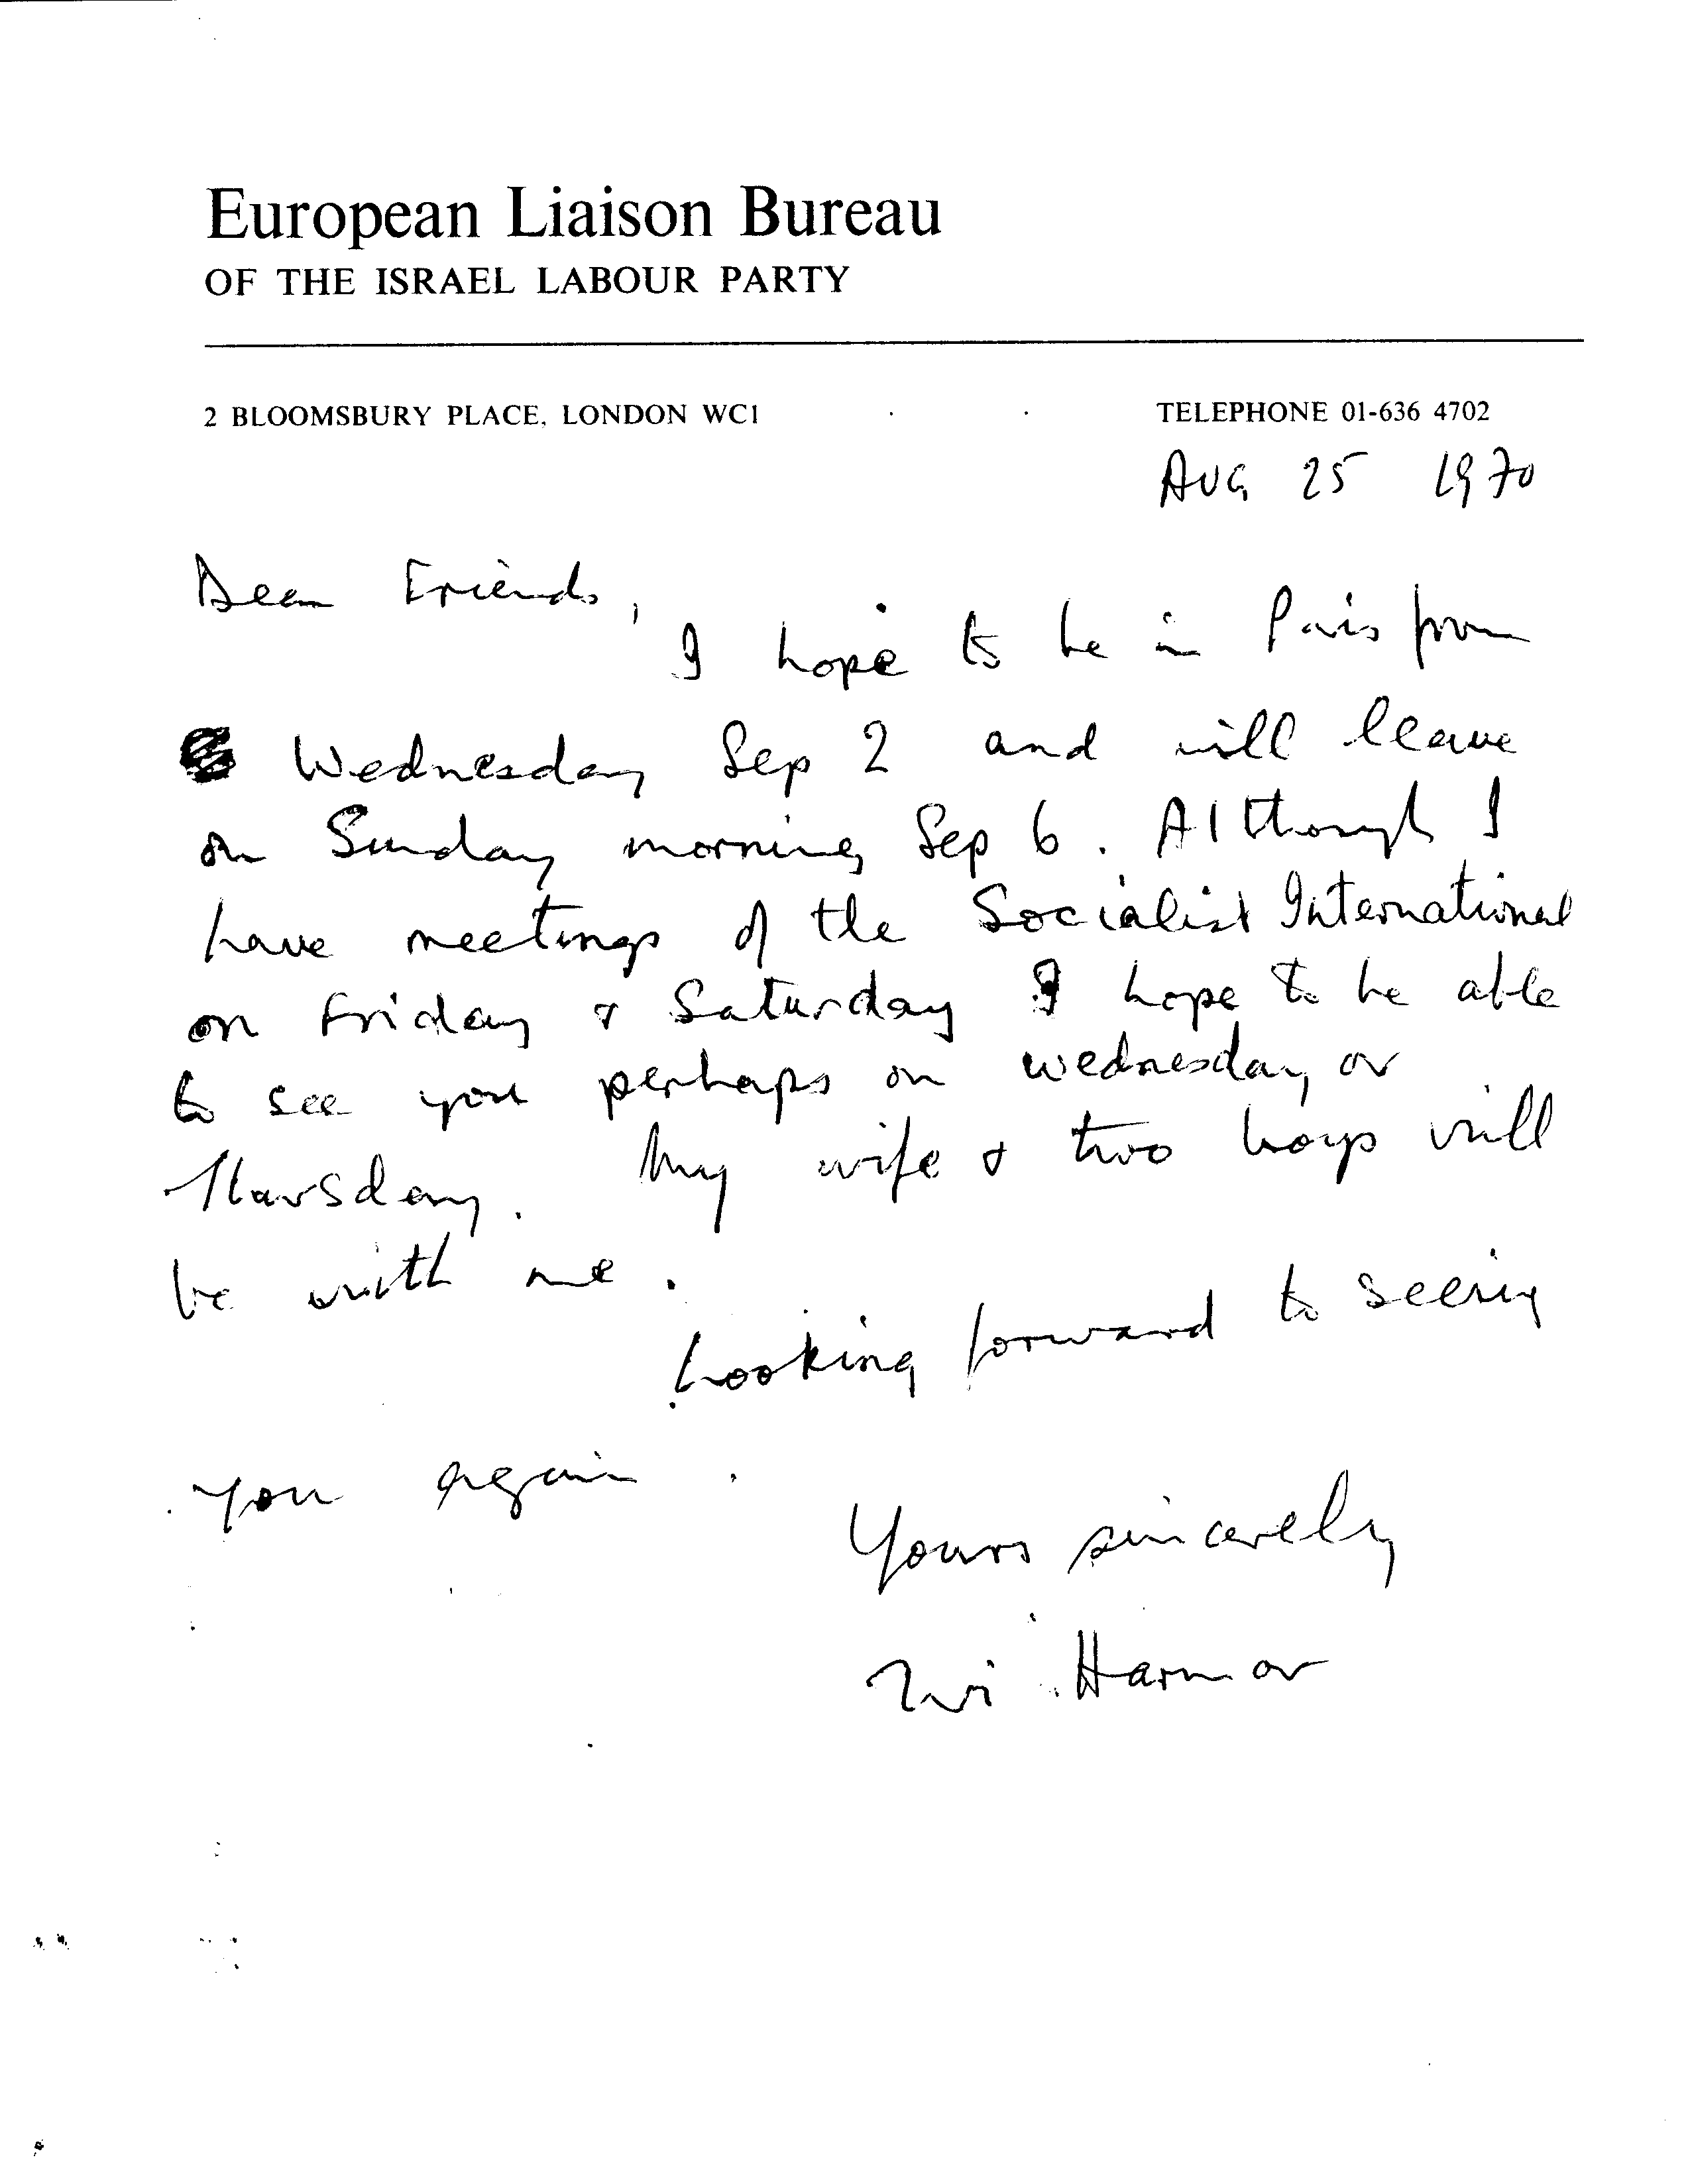 European Liaison Bureau
OF THE ISRAEL LABOUR PARTY
2 BLOOMSBURY PLACE, LONDON WC1 TELEPHONE 01-636 4702
AUG 25 1970
Dear Friends,
I hope to be in Paris from
Wednesday Sep 2 and will leave
on Sunday morning Sep 6. Although I
have meetings of the Socialist International
on Friday & Saturday I hope to be able
to see you perhaps on wednesday or
Thursday. My wife & two boys will
be with me.
Looking forward to seeing
you again.
Yours sincerely
Zvi Harmor